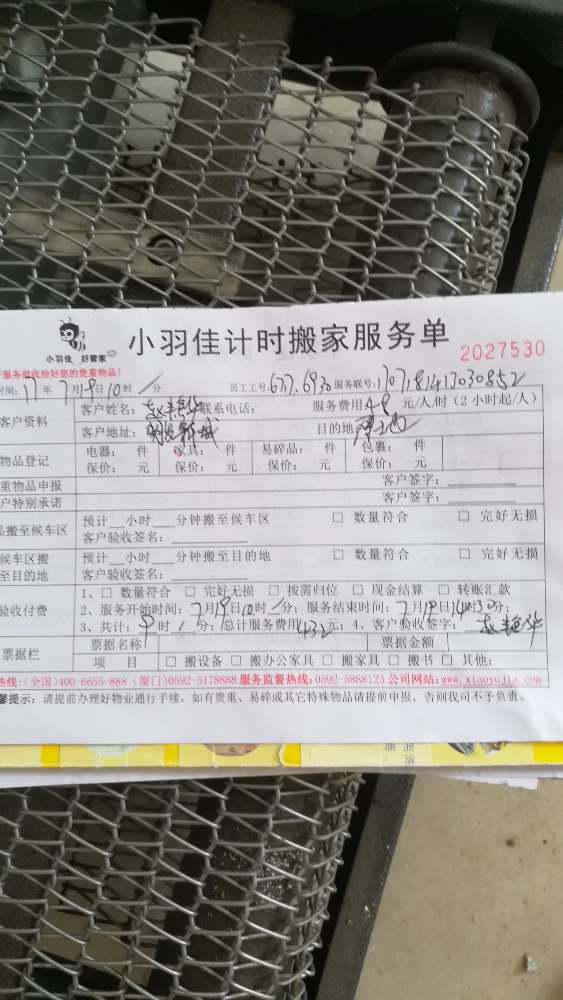 小羽佳 好管家
小羽佳计时搬家服务单
2027530
服务前收捡好您的贵重物品！
时间：17年7月19日10时/分 员工工号：677.6930 服务联号：
客户资料
客户姓名： 联系电话： 服务费用48元/人/时（2小时起/人）
客户地址： 目的地：
物品登记
电器： 件 家具： 件 易碎品： 件 包裹： 件
保价： 元 保价： 元 保价： 元 保价： 元
重物品申报 客户签字：
户特别承诺 客户签字：
品搬至候车区
预计__小时__分钟搬至候车区 □ 数量符合 □ 完好无损
客户验收签名：
候车区搬
至目的地
预计__小时__分钟搬至目的地 □ 数量符合 □ 完好无损
客户验收签名：
验收付费
1、□ 数量符合 □ 完好无损 □ 按需归位 □ 现金结算 □ 转账汇款
2、服务开始时间：7月19日10时/分；服务结束时间：7月19日14时30分；
3、共计： 时/分；总计服务费用432元；4、客户验收签字：
票据栏
票据名称 票据金额
项 目 □ 搬设备 □ 搬办公家具 □ 搬家具 □ 搬书 □ 其他：
热线：(全国)400-6655-888 (厦门)0592-5178888 服务监督热线：0592-5888123 公司网站：www.xiaoyujia.com
馨提示：请提前办理好物业通行手续，如有贵重、易碎或其它特殊物品请提前申报，否则我司不予负责。